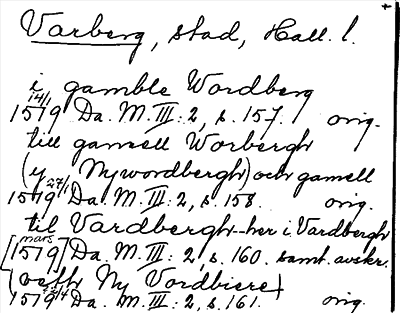 Varberg, stad, Hall. l.
i gamble Wordberg
14/1
1519 Da. M. III: 2, s. 157. orig.
till gamell Worbergh
(y Nywordbergh) och gamell
27/1
1519 Da. M. III: 2, s. 158. orig.
til Vardbergh - her i Vardbergh
[mars 1519] Da. M. III: 2, s. 160. samt. avskr.
Ny Vordbiere
1519 Da. M. III: 2, s. 161. orig.